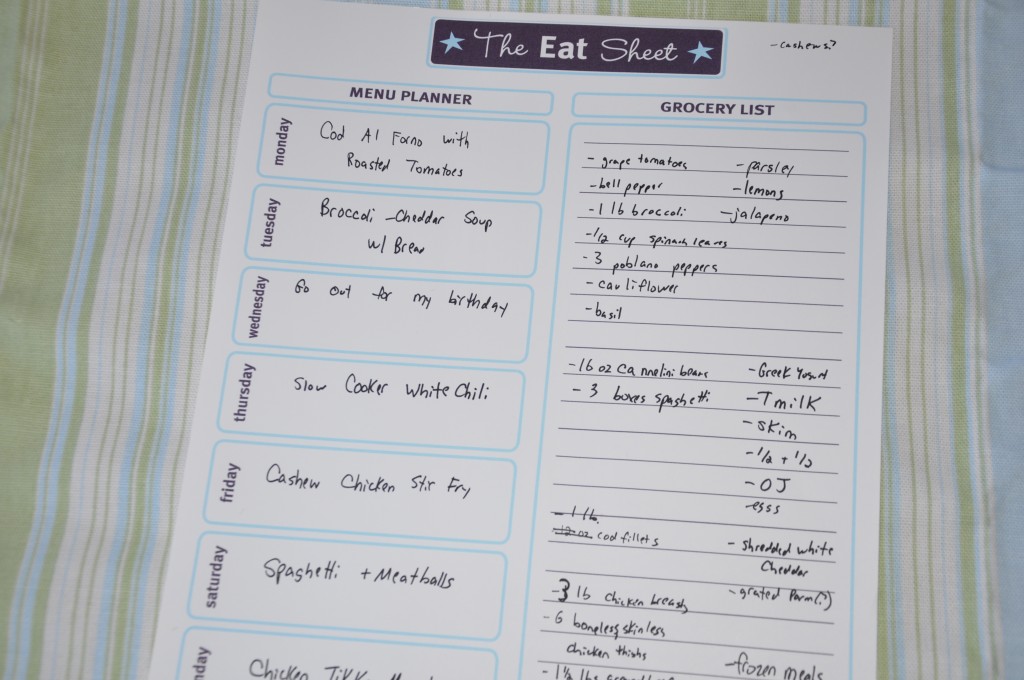 The Eat Sheet
-cashews?
MENU PLANNER
monday
Cod Al Forno with
Roasted Tomatoes
tuesday
Broccoli-Cheddar Soup
w/ Bread
wednesday
Go out for my birthday
thursday
Slow Cooker White Chili
friday
Cashew Chicken Stir Fry
saturday
Spaghetti + Meatballs
Chicken
GROCERY LIST
- grape tomatoes - parsley
- bell pepper - lemons
- 1 lb broccoli - jalapeno
- 1/2 cup spinach leaves
- 3 poblano peppers
- cauliflower
- basil
- 16 oz cannelini beans - Greek Yogurt
- 3 boxes spaghetti - T milk
- skim
- 1/2 + 1/2
- OJ
- eggs
- 1 lb.
12 oz cod fillets - shredded white
Cheddar
- 3 lb chicken breasts - grated Parm(?)
- 6 boneless skinless
chicken thighs - frozen meals
- 1 1/2 lbs